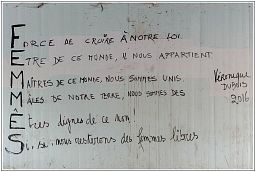 FORCE DE CROIRE À NOTRE LOI.
ETRE DE CE MONDE, IL NOUS APPARTIENT
MAÎTRES DE CE MONDE, NOUS SOMMES UNIS.
MÂLES DE NOTRE TERRE, NOUS SOMMES DES
Etres dignes de ce nom.
Si, si, nous resterons des femmes libres
Véronique
DUBOIS
2016